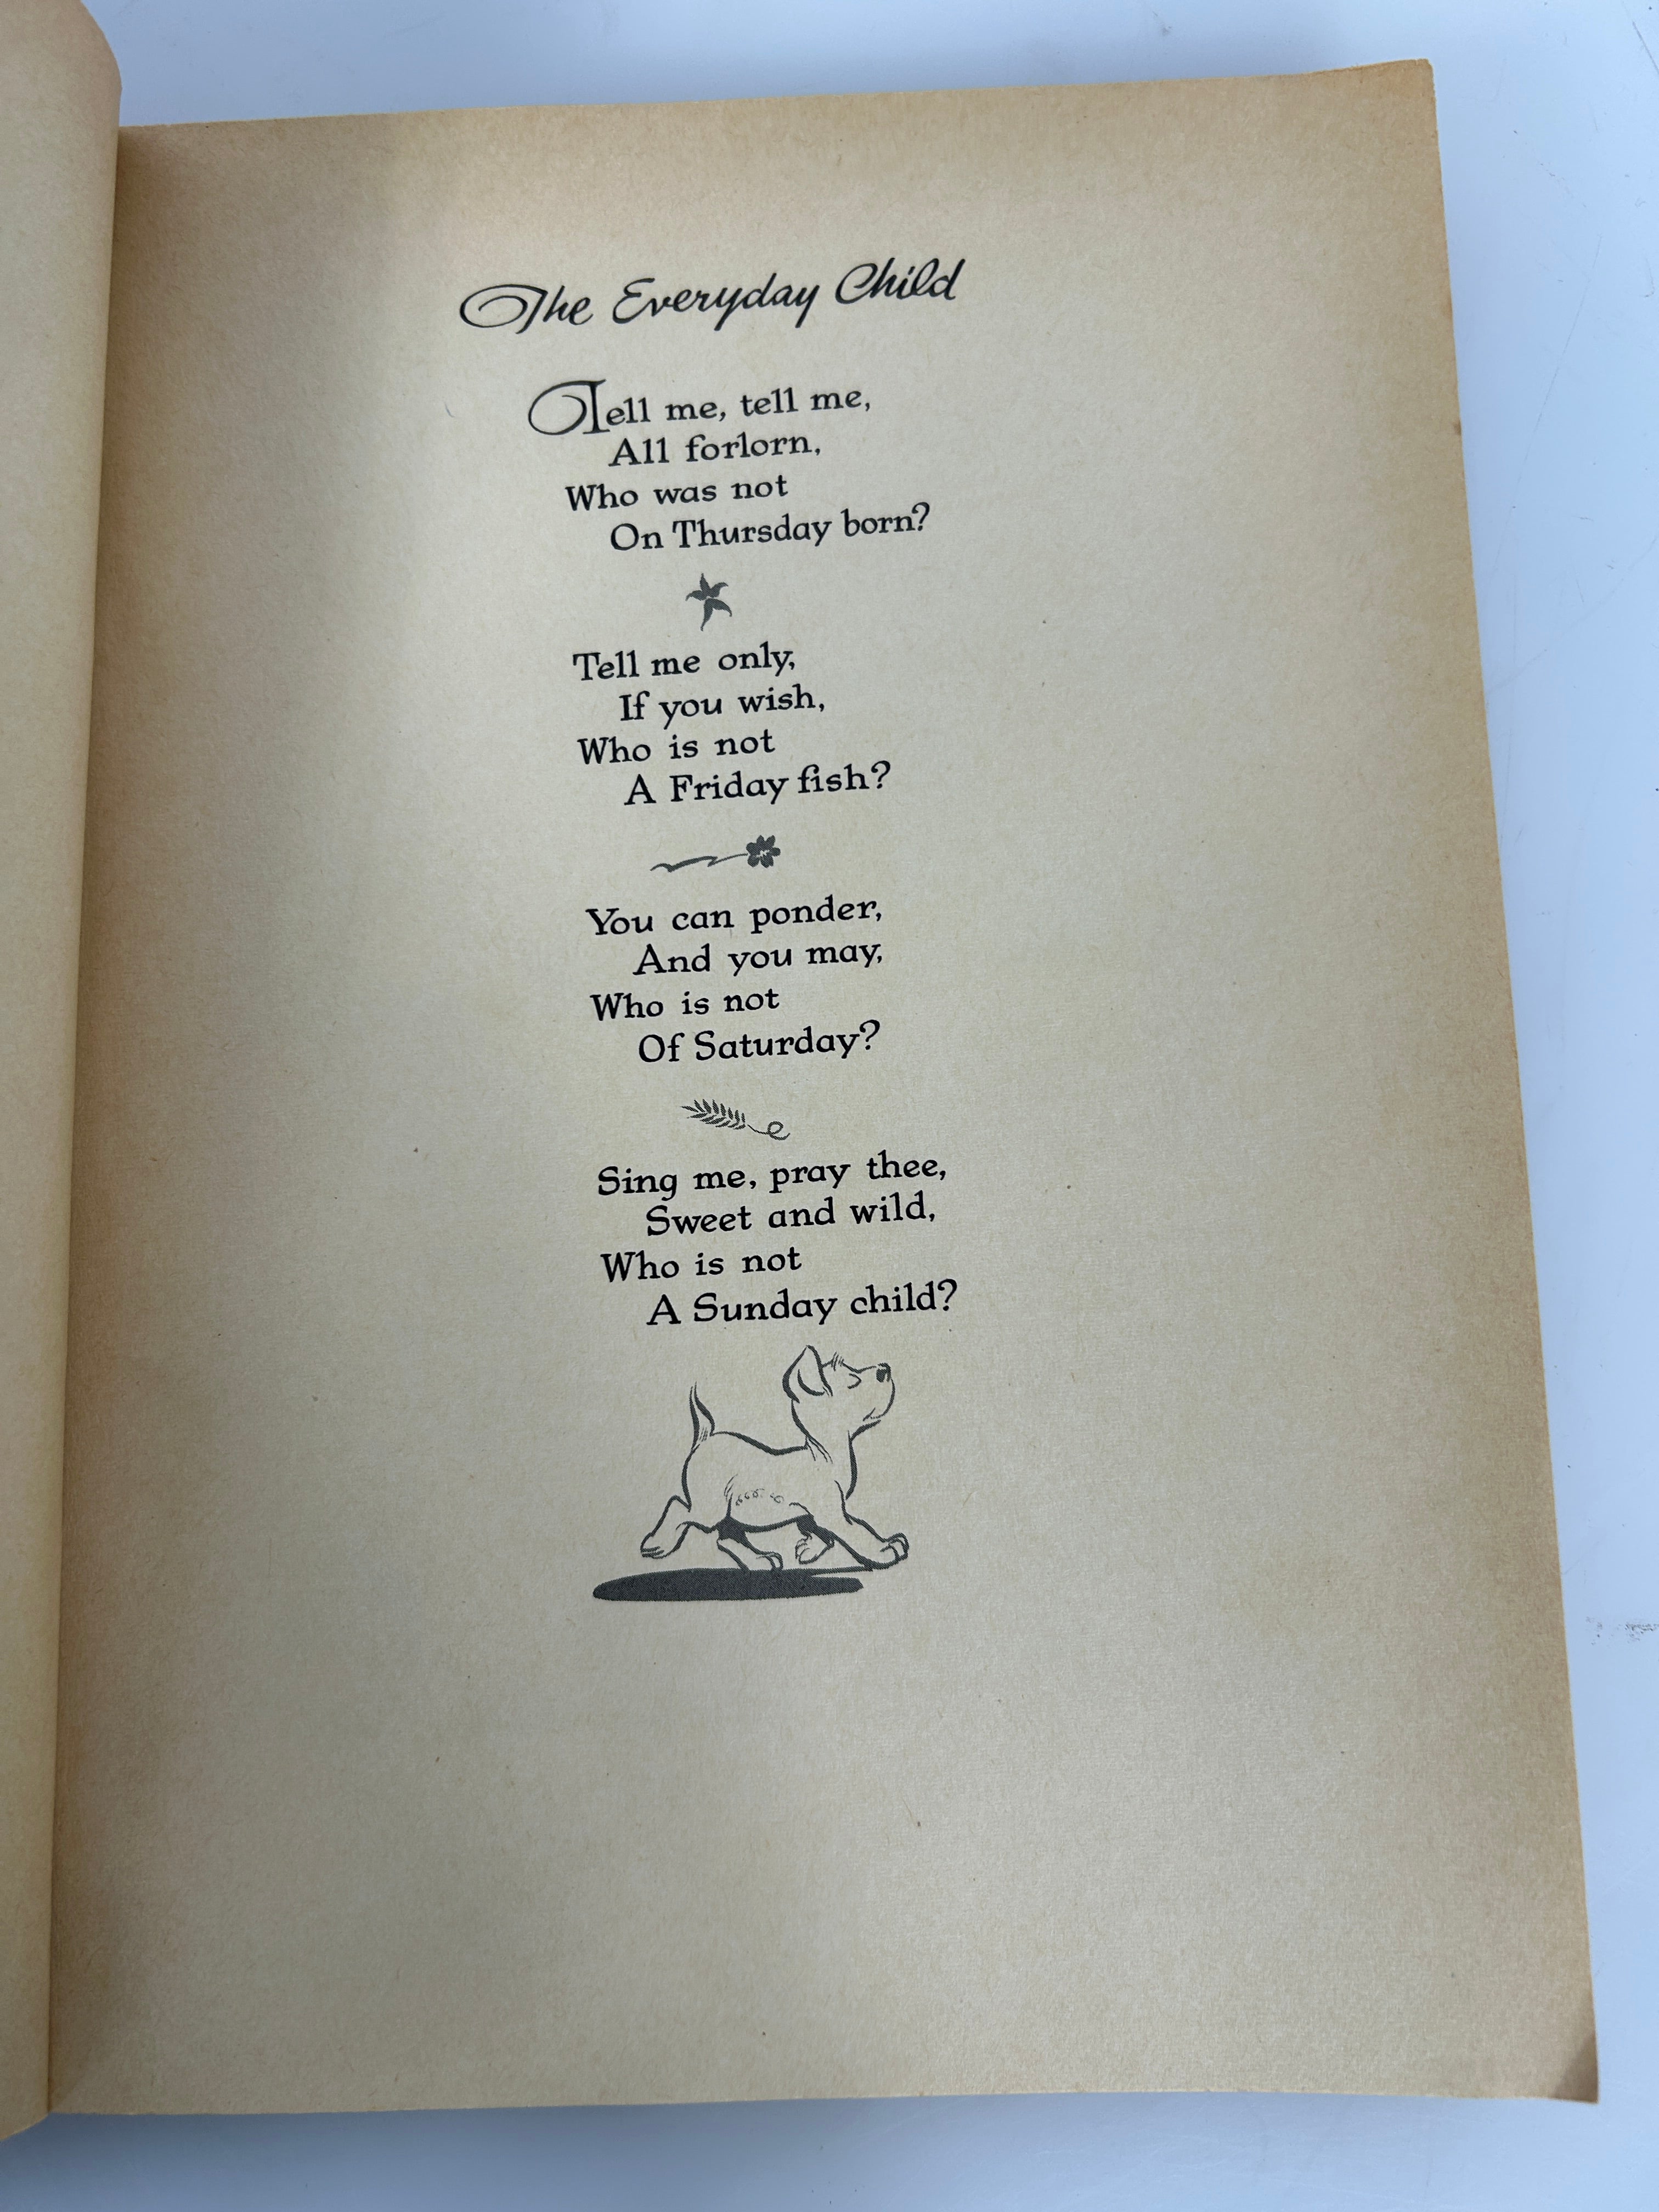 The Everyday Child
Tell me, tell me,
All forlorn,
Who was not
On Thursday born?
Tell me only,
If you wish,
Who is not
A Friday fish?
You can ponder,
And you may,
Who is not
Of Saturday?
Sing me, pray thee,
Sweet and wild,
Who is not
A Sunday child?